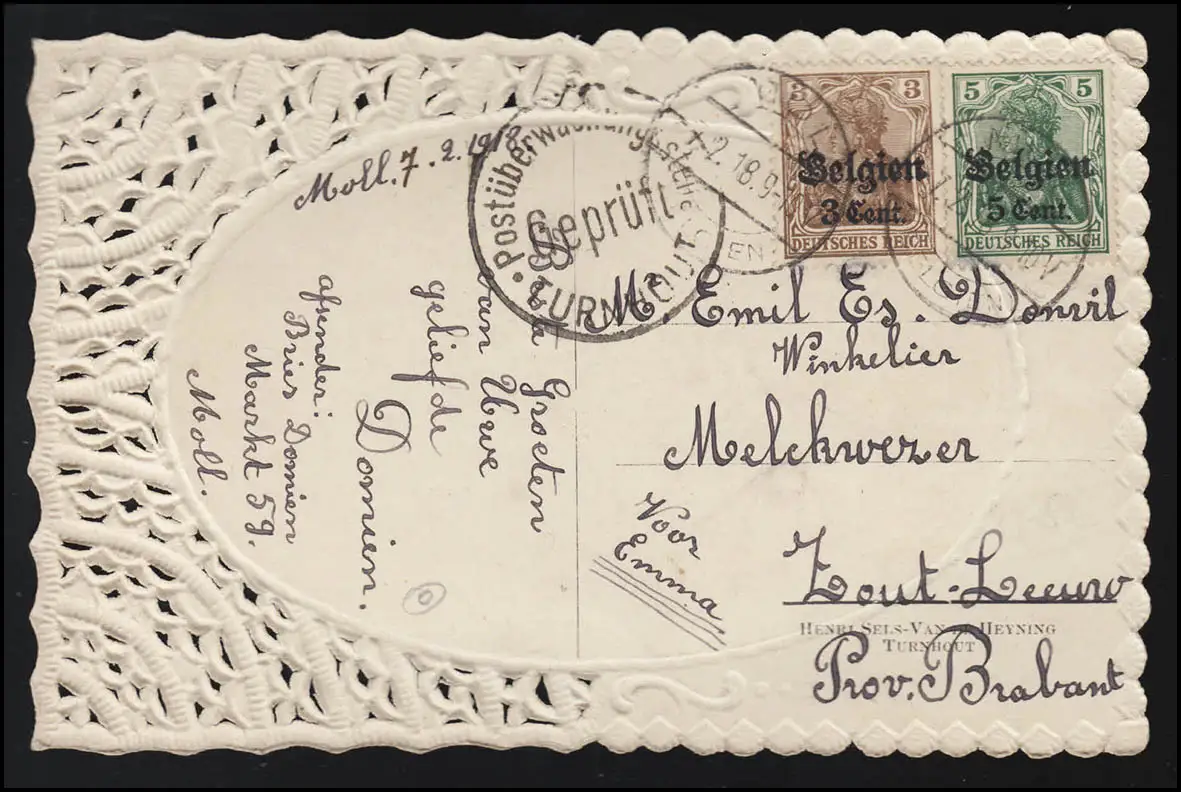 Moll. 7. 2. 1918
Postüberwachungsstelle
Geprüft
TURNHOUT
2.18.9-
EN
3 3
Belgien
3 Cent.
DEUTSCHES REICH
5 5
Belgien
5 Cent.
DEUTSCHES REICH
Groeten
van Uwe
geliefde
Domien.
afsender:
Bries Domien
Markt 59.
Moll.
M. Emil Es. Donvil
Winkelier
Melckwezer
Voor
Emma
Zout-Leeuw
HENRI SELS-VAN DE HEYNING
TURNHOUT
Prov. Brabant